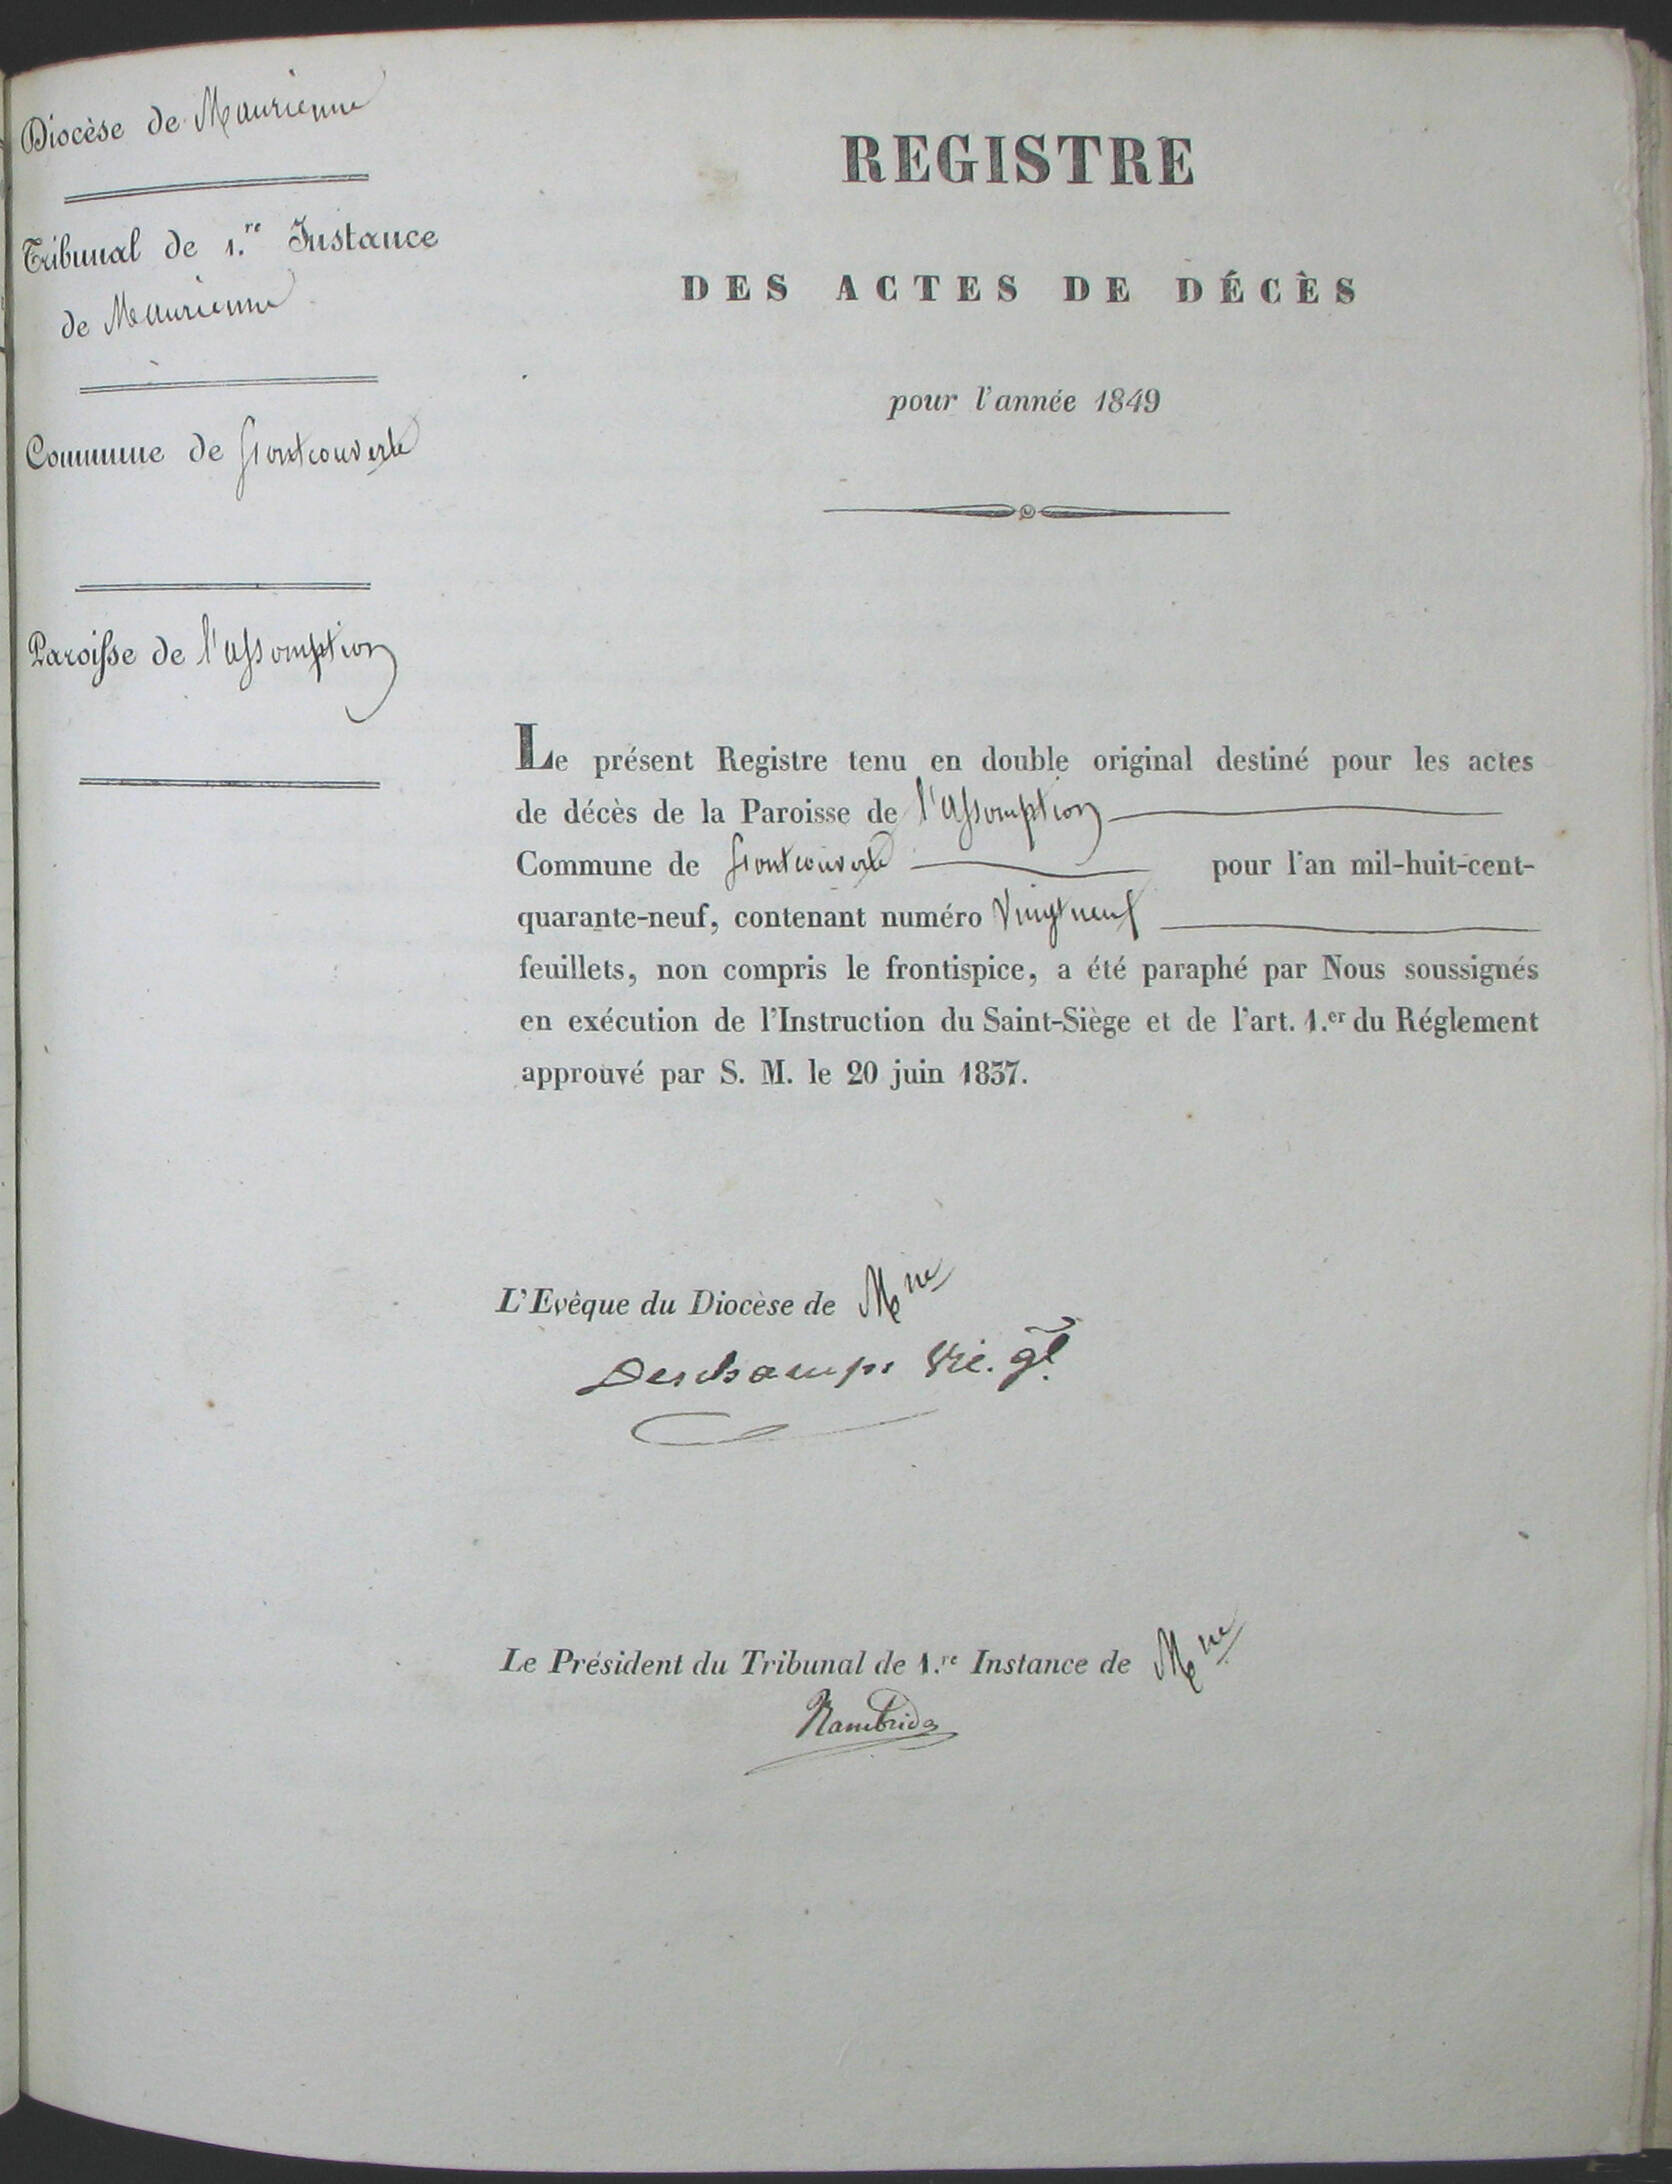 Diocèse de Maurienne
Tribunal de 1.re Instance
de Maurienne
Commune de fontcouverte
Paroisse de l'assomption
REGISTRE
DES ACTES DE DÉCÈS
pour l'année 1849
Le présent Registre tenu en double original destiné pour les actes
de décès de la Paroisse de l'assomption
Commune de fontcouverte pour l'an mil-huit-cent-
quarante-neuf, contenant numéro Vingt neuf
feuillets, non compris le frontispice, a été paraphé par Nous soussignés
en exécution de l'Instruction du Saint-Siège et de l'art. 1.er du Réglement
approuvé par S. M. le 20 juin 1837.
L'Evêque du Diocèse de Mne
Deschamps Vic. gl.
Le Président du Tribunal de 1.re Instance de Mne